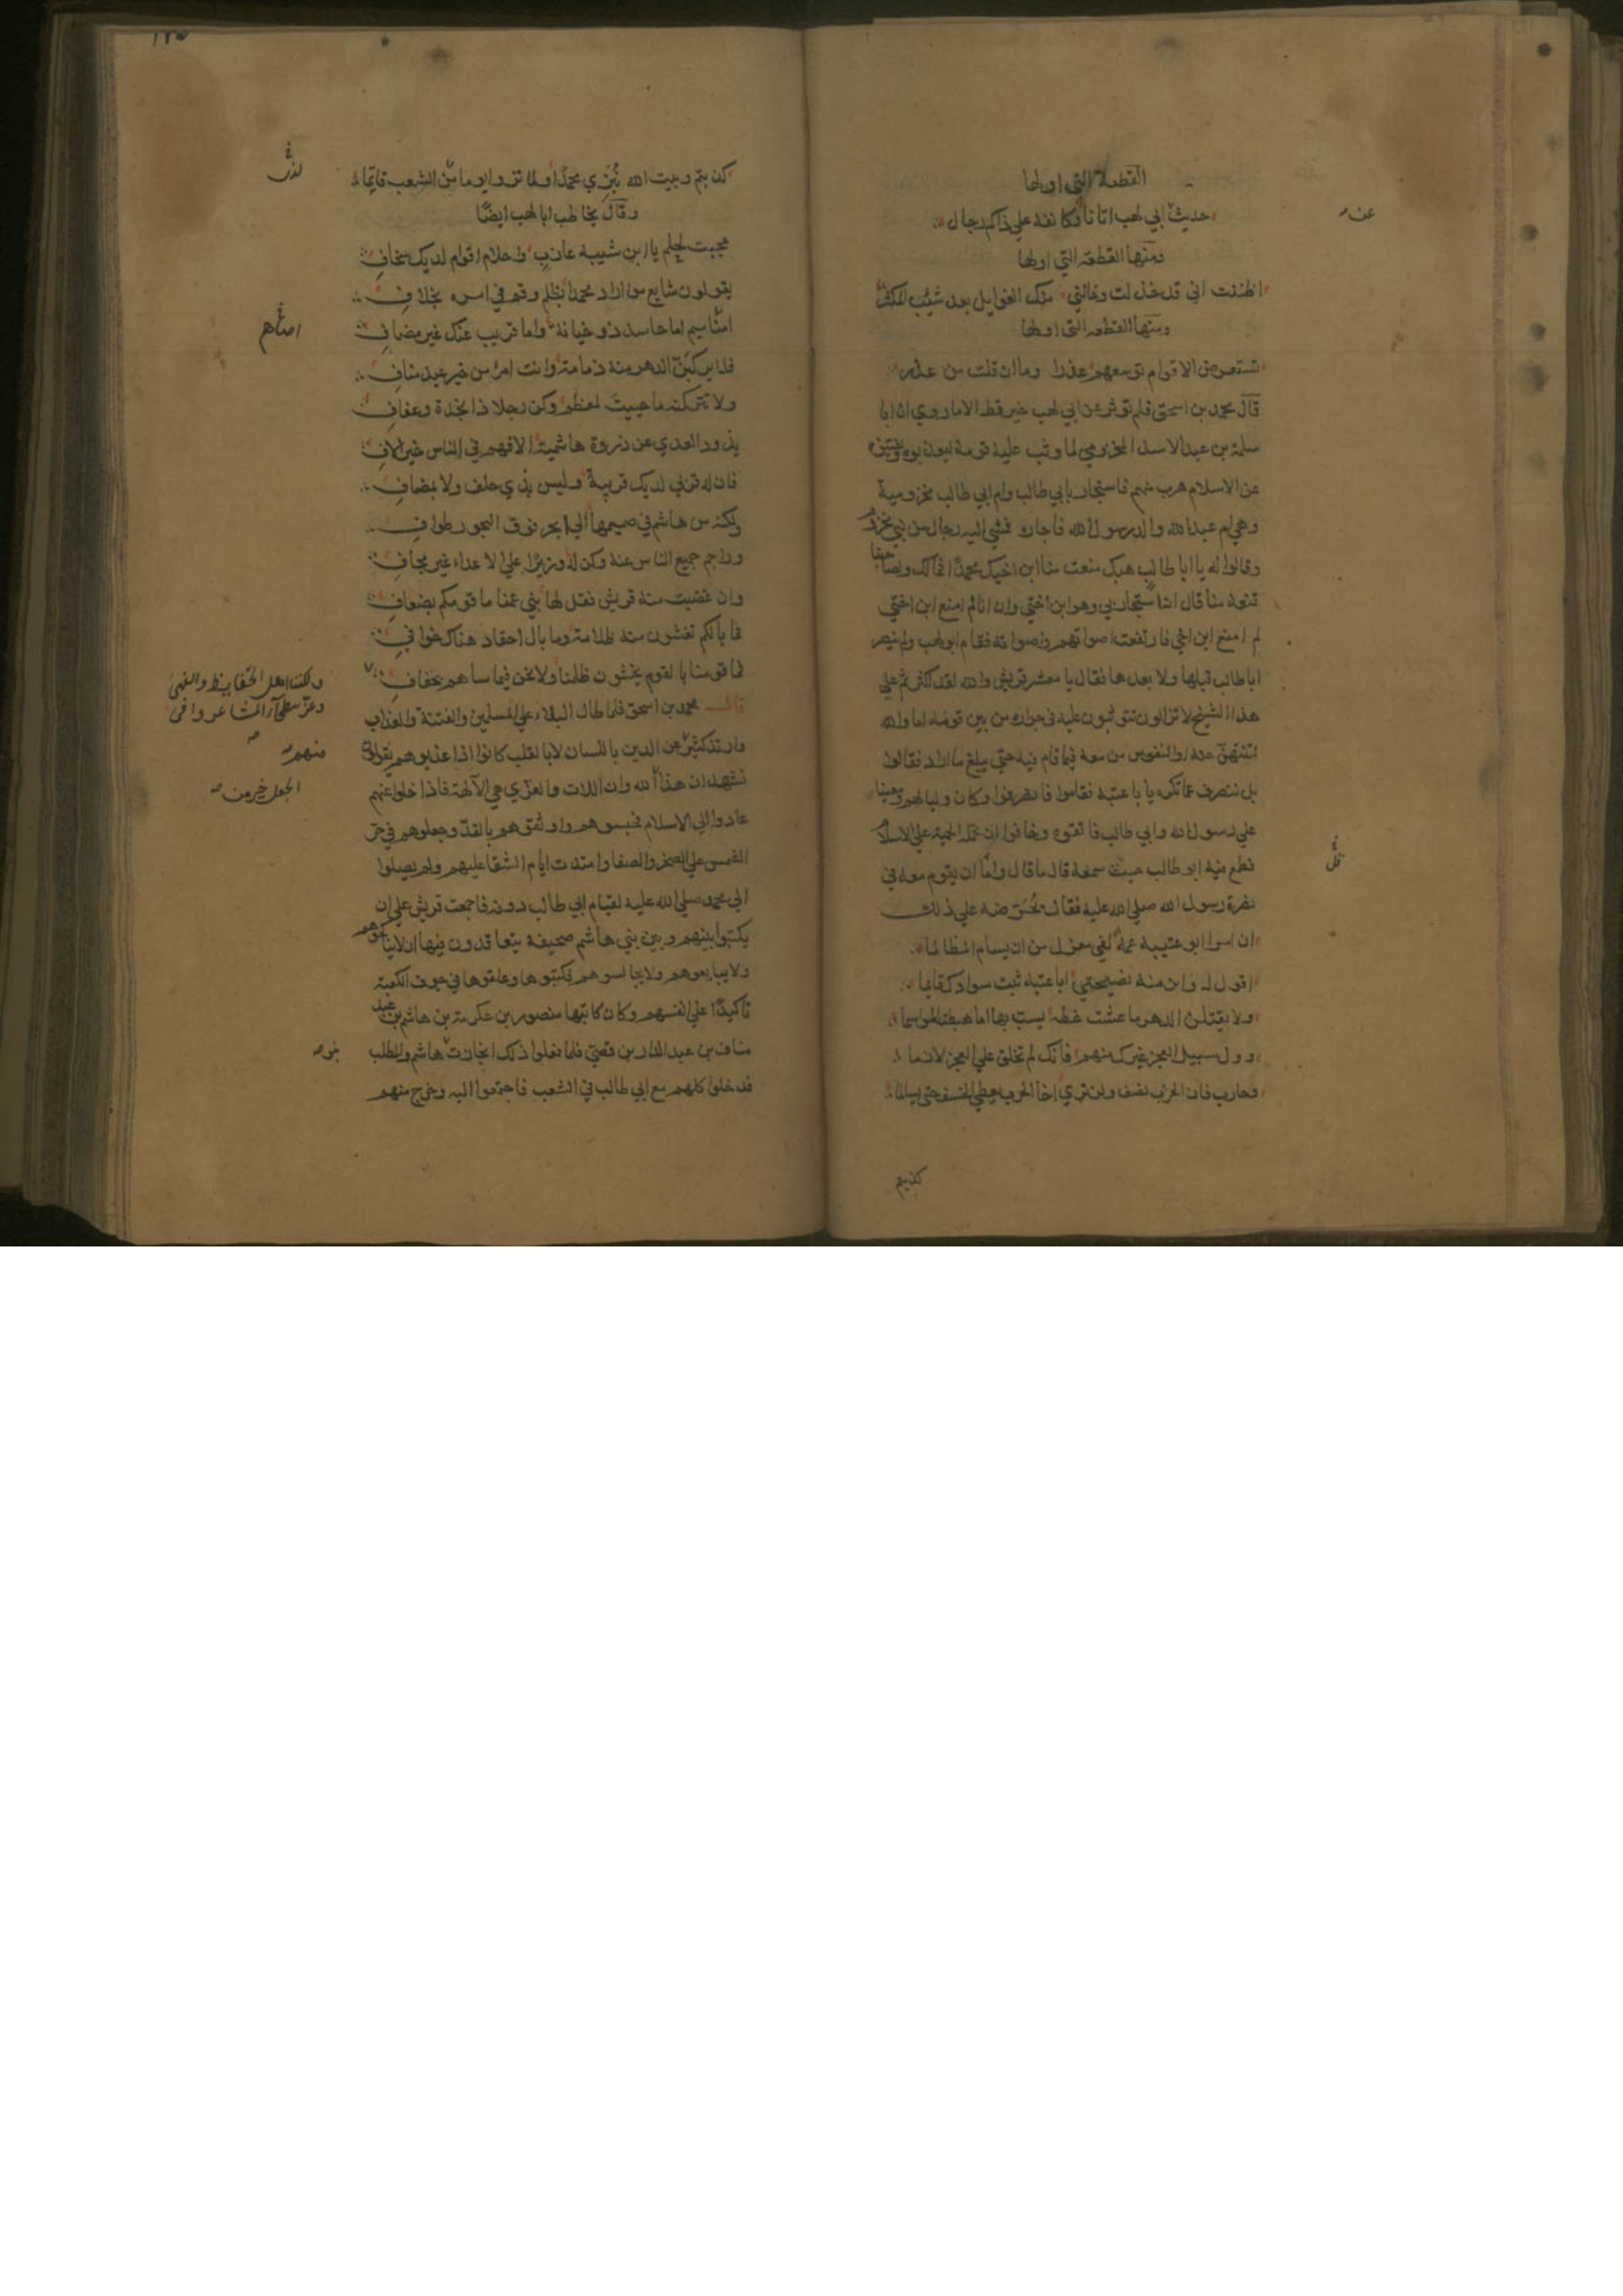 القطعة التي اولها
حديث ابي لهب اتانا وكانفه علي ذاكم رجال
عنـ
ومنها القطعه التي اولها
اظننت اني قد خذلت وغالني منك الغوايل بعد شيب المكبر
ومنها القطعه التي اولها
تستعرض الاقوام توسعهم عذرا وما ان قلت من عذر
قال محمد بن اسحق فلم تؤثر عن ابي لهب خير قط الا ما روي ان ابا
سلمة بن عبد الاسد المخزومي لما وثب عليه قومه ليعذبوه ويفتنوه
عن الاسلام هرب منهم فاستجار بابي طالب وام ابي طالب مخزومية
وهي ام عبد الله والد رسول الله فاجاره فمشي اليه رجال من بني مخزوم
وقالوا له يا ابا طالب هبك منعت منا ابن اخيك محمدا فما لك ولصاحبنا
تمنعه منا قال انه استجار بي وهو ابن اختي وان انا لم امنع ابن اختي
لم امنع ابن اخي فارتفعت اصواتهم واصواته فقام ابو لهب ولم ينصر
ابا طالب قبلها ولا بعدها فقال يا معشر قريش والله لقد اكثرتم علي
هذا الشيخ لا تزالون تتوثبون عليه في جواره من بين قومه اما والله
لتنتهن عنه او لنقومن معه فيما قام فيه حتي يبلغ ما اراد فقالوا
بل ننصرف عما تكره يا با عتبه فقاموا فانصرفوا وكان وليا لهم ومعينا
علي رسول الله وابي طالب فاتقوه وخافوا ان تحمله الحمية علي الاسلام
فطمع فيه ابو طالب حيث سمعه قال ما قال وامل ان يقوم معه في
نصرة رسول الله صلي الله عليه فقال يحرضه علي ذلك
ان امرا ابو عتيبة عمه لفي معزل من ان يسام المظالما
اقول له واين منه نصيحتي ابا عتبه ثبت سوادك قايما
ولا تقبلن الدهر ما عشت خطة تسب بها اما هبطت المواسما
وول سبيل العجز غيرك منهم فانك لم تخلق علي العجز لازما
وحارب فان الحرب نصف ولن تري اخا الحرب يعطي الخسف حتي يسالما
كذبتم
كذبتم وبيت الله نبزي محمدا ولما تروا يوما من الشعب قايما
وقال يخاطب ابا لهب ايضا
عجبت لحلم يا ابن شيبه عازب واحلام اقوام لديك سخاف
يقولون شايع من اراد محمدا بظلم وقم في امره بخلاف
اضاميم اما حاسد ذو خيانة واما قريب عنك غير مصاف
فلا يركبن الدهر منه ذمامة وانت امرؤ من خير عبد مناف
ولا تتركنه ما حييت لمعظم وكن رجلا ذا نجدة وعفاف
يذود العدي عن ذروة هاشمية الافهم في الناس خير الاف
فان له قربي لديك قريبة وليس بذي حلف ولا بمضاف
ولكنه من هاشم في صميمها الي ابحر فوق البحور طواف
وزاحم جميع الناس عنه وكن له وزيرا علي الاعداء غير مجاف
وان غضبت منه قريش فقل لها بني عمنا ما قومكم بضعاف
فما بالكم تغشون منه ظلامة وما بال احقاد هناك خوافي
فما قومنا بالقوم يخشون ظلمنا ولا نحن فيما ساهم بخفاف
ولكننا اهل الحفايظ والنهي
وعز ببطحاء المشاعر وافي
قال محمد بن اسحق فلما طال البلاء علي المسلمين والفتنة والعذاب
وارتد كثير عن الدين باللسان لا بالقلب كانوا اذا عذبوهم يقولون
منهم
نشهد ان هذا الله وان اللات والعزي هي الآلهة فاذا خلوا عنهم
عادوا الي الاسلام فحبسوهم واوثقوهم بالقد وجعلوهم في حر
الشمس علي الصخر والصفا وامتدت ايام الشقا عليهم ولم يصلوا
الي محمد صلي الله عليه لقيام ابي طالب دونه فاجمعت قريش علي ان
يكتبوا بينهم وبين بني هاشم صحيفة يتعاقدون فيها ان لا يناكحوهم
ولا يبايعوهم ولا يجالسوهم فكتبوها وعلقوها في جوف الكعبة
تاكيدا علي انفسهم وكان كاتبها منصور بن عكرمة بن هاشم بن عبد
مناف بن عبد الدار بن قصي فلما فعلوا ذلك انحازت هاشم والمطلب
بنو
فدخلوا كلهم مع ابي طالب في الشعب فاجتمعوا اليه وخرج منهم